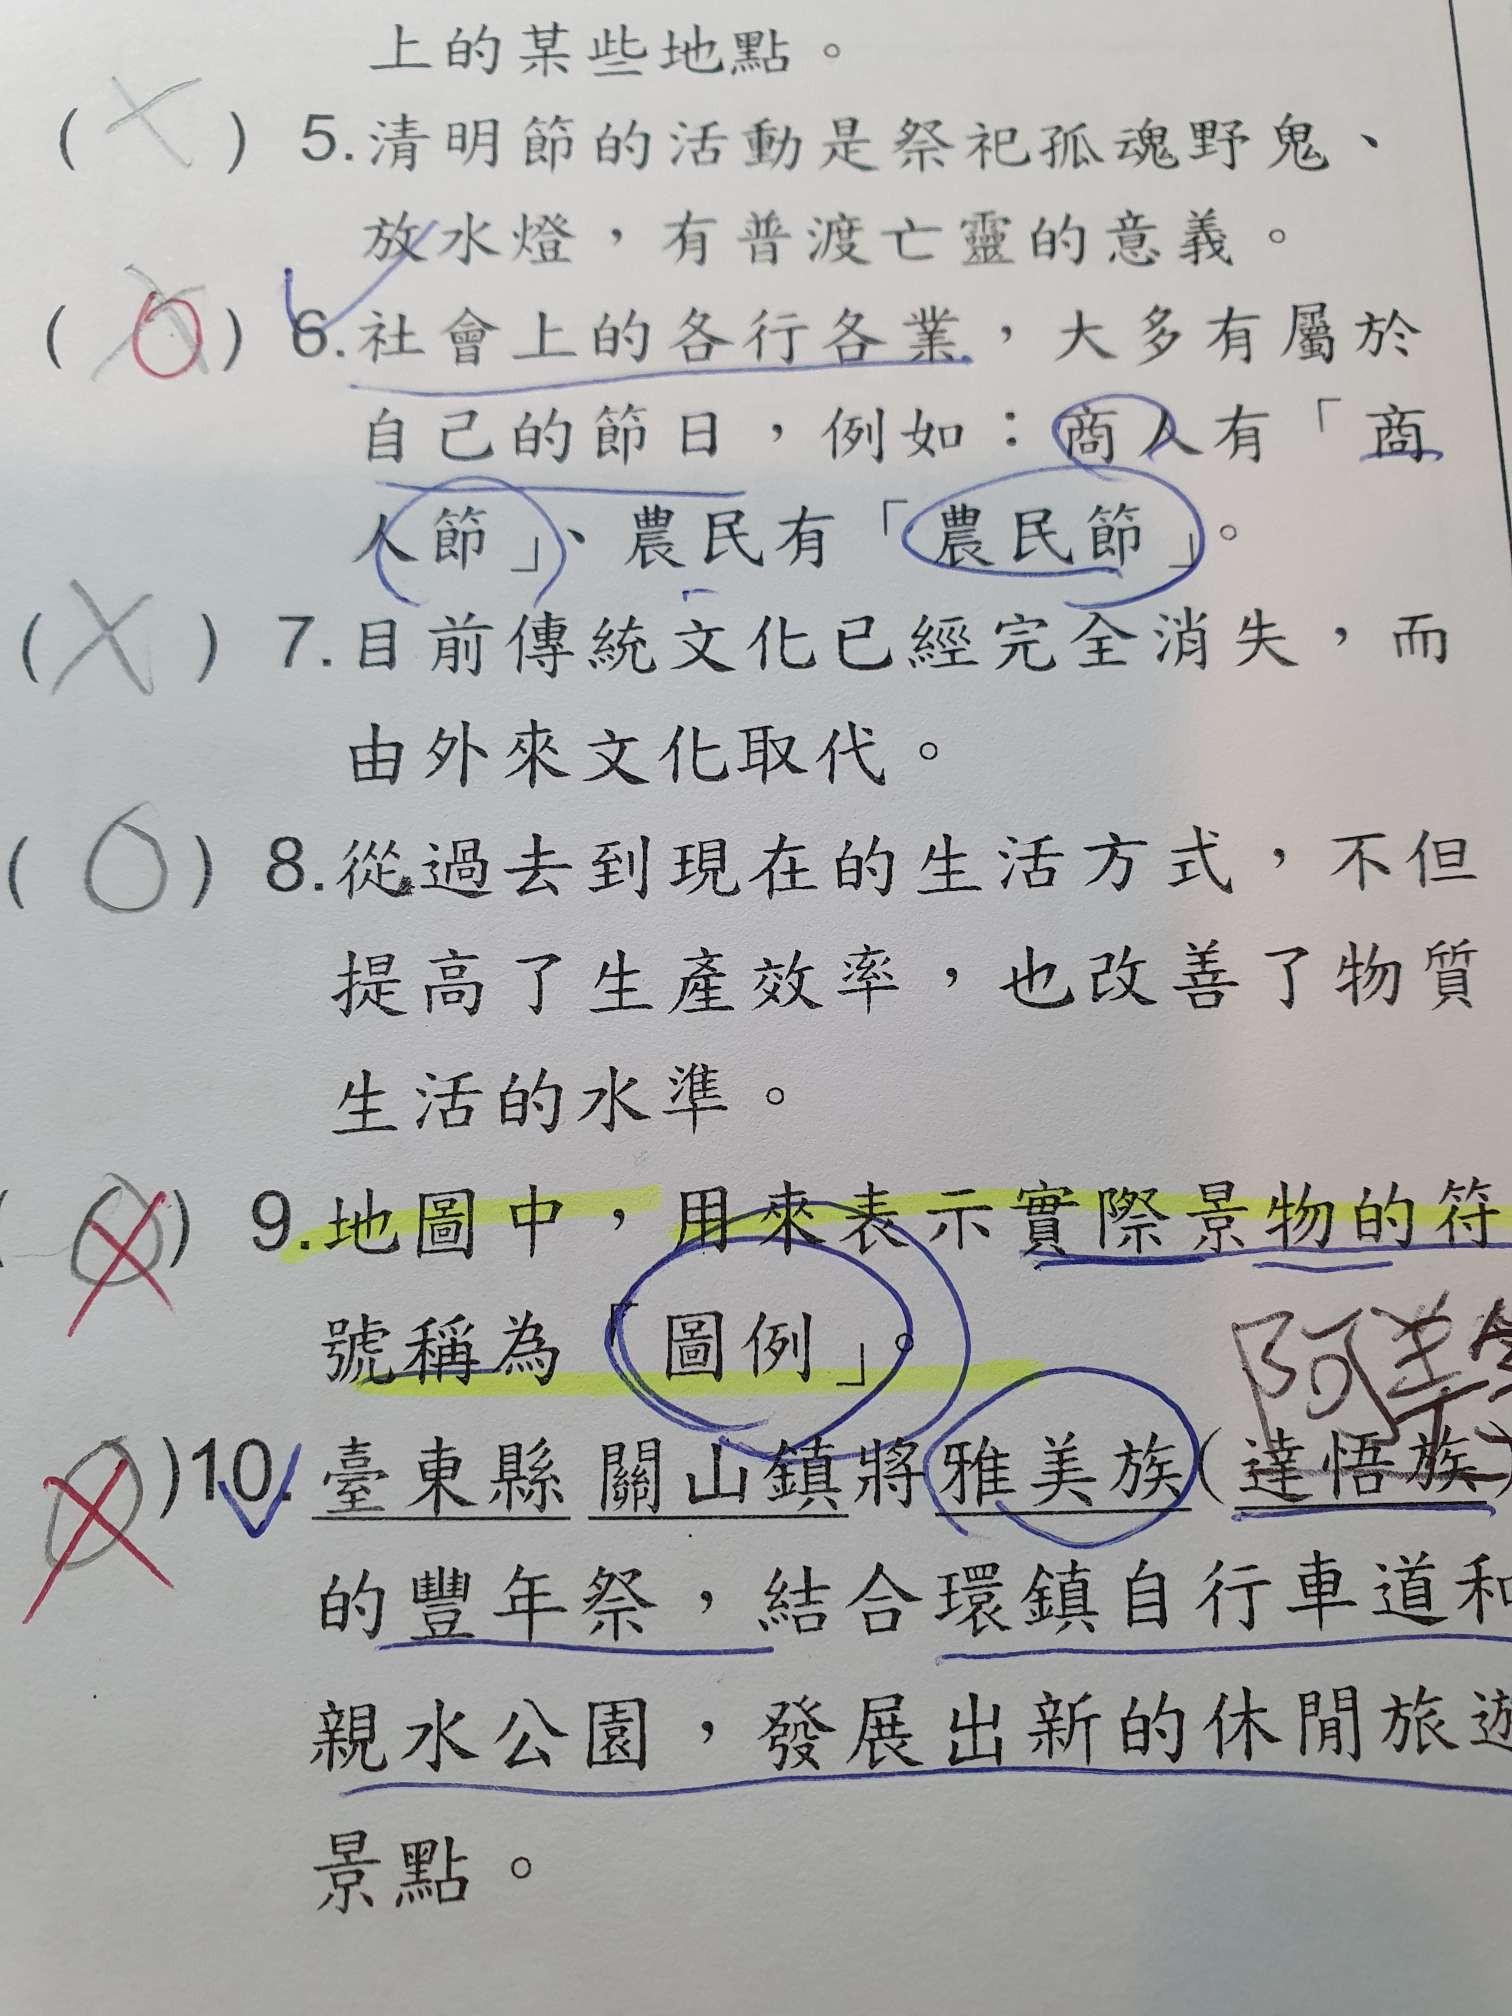 上的某些地點。
( X ) 5.清明節的活動是祭祀孤魂野鬼、
放水燈，有普渡亡靈的意義。
( O ) 6.社會上的各行各業，大多有屬於
自己的節日，例如：商人有「商
人節」、農民有「農民節」。
( X ) 7.目前傳統文化已經完全消失，而
由外來文化取代。
( O ) 8.從過去到現在的生活方式，不但
提高了生產效率，也改善了物質
生活的水準。
( X ) 9.地圖中，用來表示實際景物的符
號稱為「圖例」。
阿美
X )10.臺東縣關山鎮將雅美族(達悟族)
的豐年祭，結合環鎮自行車道和
親水公園，發展出新的休閒旅遊
景點。